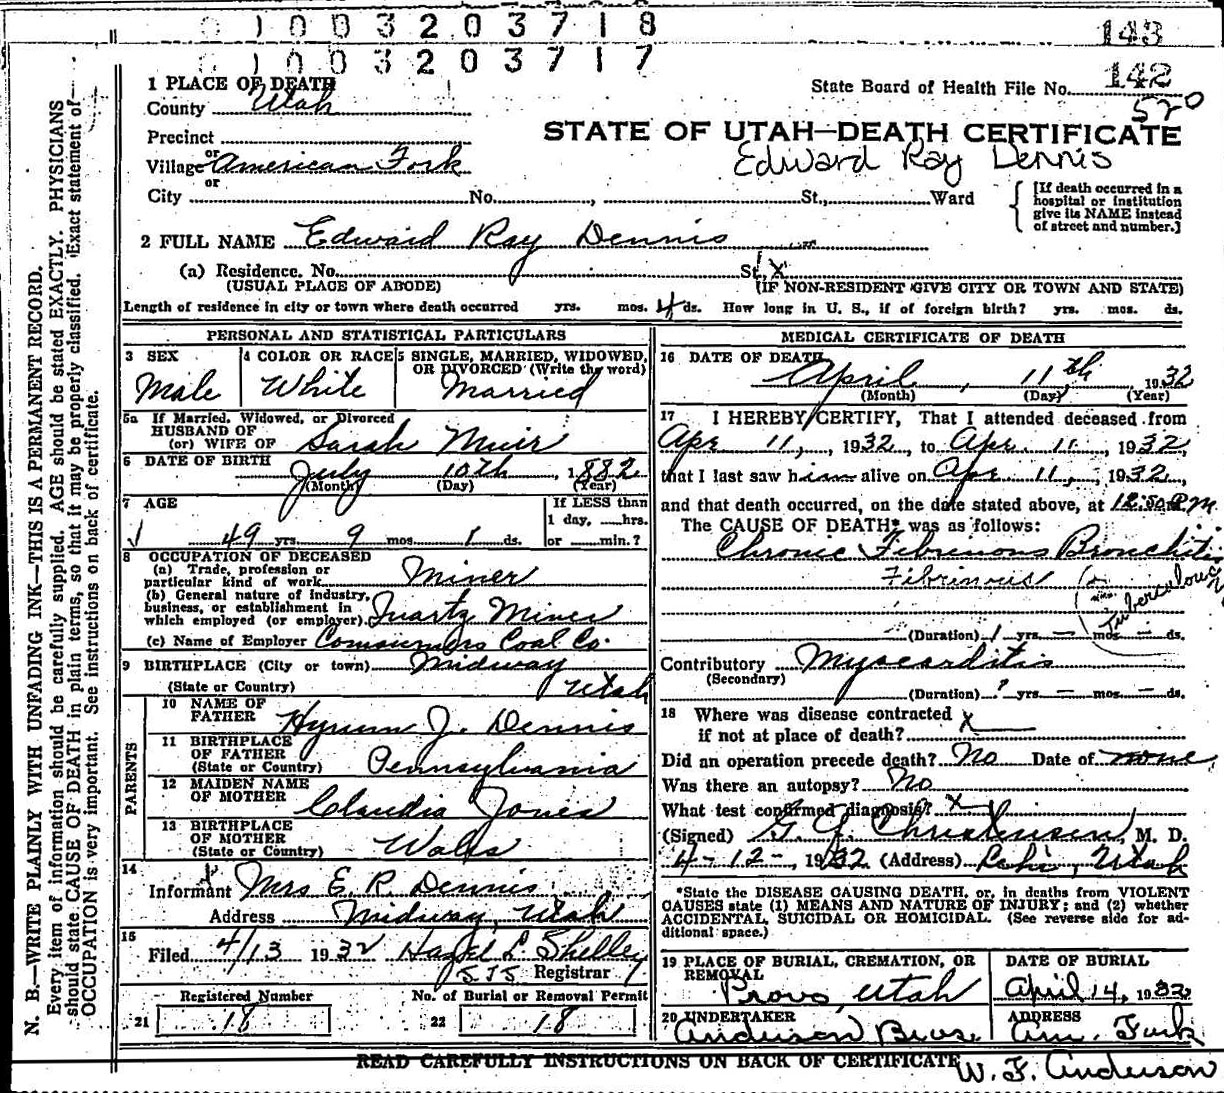 1003203718
143
1003203717
142
1 PLACE OF DEATH
State Board of Health File No.
County Utah
520
Precinct
STATE OF UTAH—DEATH CERTIFICATE
or
Village American Fork
Edward Ray Dennis
or
City No. , St., Ward
[If death occurred in a hospital or institution give its NAME instead of street and number.]
2 FULL NAME Edward Ray Dennis
(a) Residence. No. St. X
(USUAL PLACE OF ABODE) (IF NON-RESIDENT GIVE CITY OR TOWN AND STATE)
Length of residence in city or town where death occurred yrs. mos. 4 ds. How long in U. S., if of foreign birth? yrs. mos. ds.
PERSONAL AND STATISTICAL PARTICULARS
3 SEX 4 COLOR OR RACE 5 SINGLE, MARRIED, WIDOWED, OR DIVORCED (Write the word)
Male White Married
5a If Married, Widowed, or Divorced
HUSBAND OF
(or) WIFE OF Sarah Muir
6 DATE OF BIRTH July 10th, 1882
(Month) (Day) (Year)
7 AGE
If LESS than
1 day, hrs.
49 yrs. 9 mos. 1 ds. or min.?
8 OCCUPATION OF DECEASED
(a) Trade, profession or
particular kind of work Miner
(b) General nature of industry,
business, or establishment in
which employed (or employer) Quartz Mines
(c) Name of Employer Consumers Coal Co.
9 BIRTHPLACE (City or town) Midway
(State or Country) Utah
PARENTS
10 NAME OF
FATHER Hyrum J. Dennis
11 BIRTHPLACE
OF FATHER
(State or Country) Pennsylvania
12 MAIDEN NAME
OF MOTHER Claudia Jones
13 BIRTHPLACE
OF MOTHER
(State or Country) Wales
14
Informant Mrs E. R Dennis
Address Midway, Utah
15
Filed 4/13 1932 Hazel L. Shelley
SJS Registrar
Registered Number No. of Burial or Removal Permit
21 18 22 18
MEDICAL CERTIFICATE OF DEATH
16 DATE OF DEATH
April, 11th, 1932
(Month) (Day) (Year)
17 I HEREBY CERTIFY, That I attended deceased from
Apr 11, 1932, to Apr. 11, 1932,
that I last saw him alive on Apr 11, 1932,
and that death occurred, on the date stated above, at 12:50 P.m.
The CAUSE OF DEATH* was as follows:
Chronic Fibrinous Bronchitis
Fibrinous
Tuberculous
(Duration) 1 yrs. — mos. — ds.
Contributory Myocarditis
(Secondary)
(Duration) ? yrs. — mos. — ds.
18 Where was disease contracted
if not at place of death? X
Did an operation precede death? No Date of none
Was there an autopsy? No
What test confirmed diagnosis? X
(Signed) G. J. Christensen, M. D.
4-12-, 1932 (Address) Lehi, Utah
*State the DISEASE CAUSING DEATH, or, in deaths from VIOLENT
CAUSES state (1) MEANS AND NATURE OF INJURY; and (2) whether
ACCIDENTAL, SUICIDAL OR HOMICIDAL. (See reverse side for ad-
ditional space.)
19 PLACE OF BURIAL, CREMATION, OR
REMOVAL
Provo, Utah
DATE OF BURIAL
April 14, 1932
20 UNDERTAKER
Anderson Bros.
ADDRESS
Am. Fork
READ CAREFULLY INSTRUCTIONS ON BACK OF CERTIFICATE
W. F. Anderson
N. B.—WRITE PLAINLY WITH UNFADING INK—THIS IS A PERMANENT RECORD.
Every item of information should be carefully supplied. AGE should be stated EXACTLY. PHYSICIANS
should state CAUSE OF DEATH in plain terms, so that it may be properly classified. Exact statement of
OCCUPATION is very important. See instructions on back of certificate.